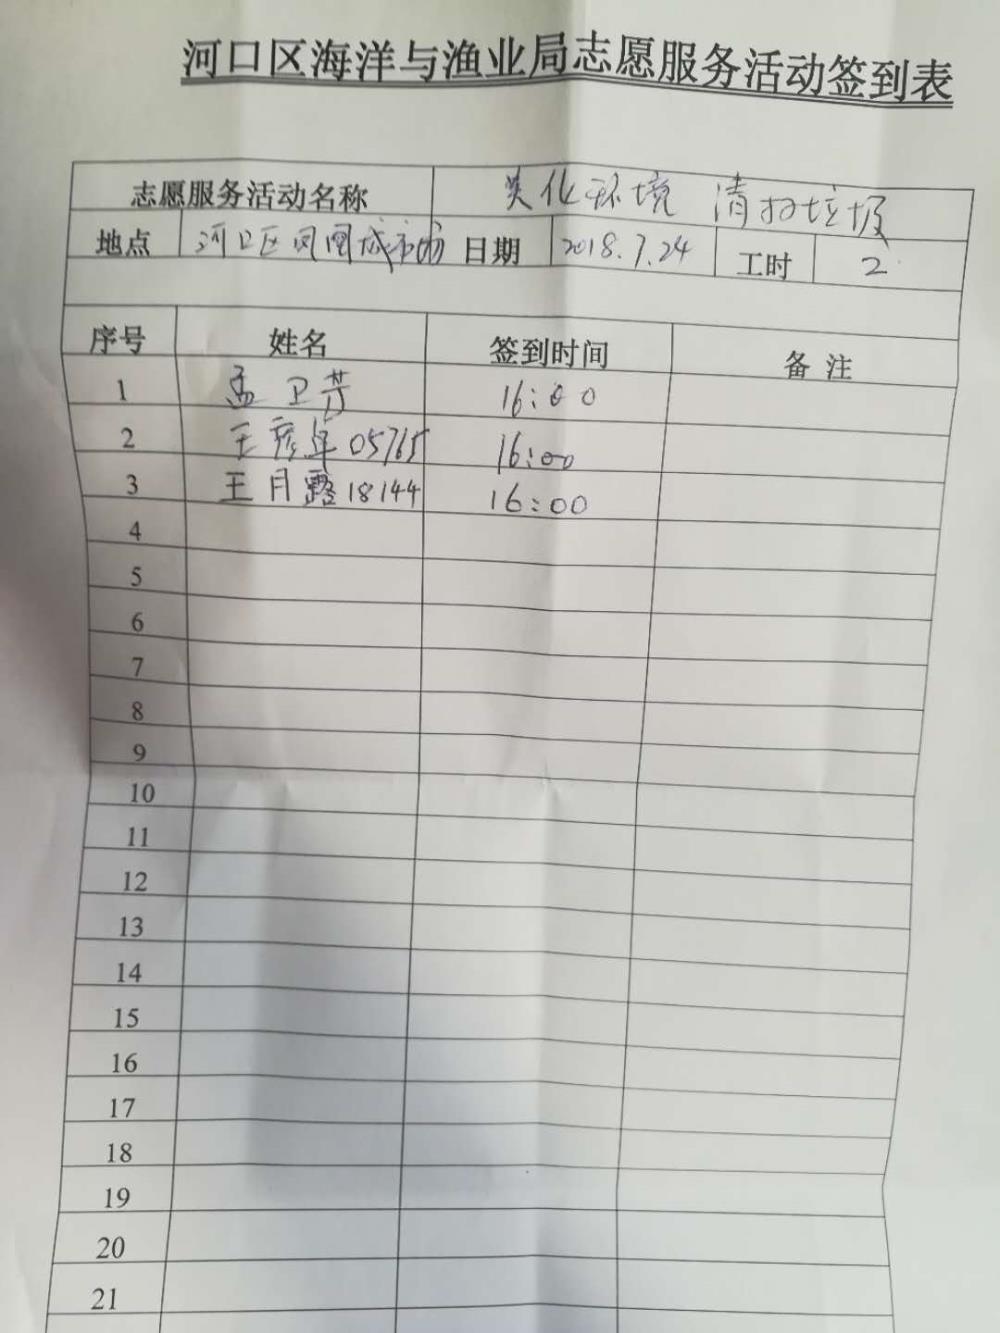 河口区海洋与渔业局志愿服务活动签到表
志愿服务活动名称 美化环境 清扫垃圾
地点 河口区凤凰城 日期 2018.7.24 工时 2
序号 姓名 签到时间 备注
1 孟卫芳 16:00
2 王彦军 05765 16:00
3 王月露 18144 16:00
4
5
6
7
8
9
10
11
12
13
14
15
16
17
18
19
20
21